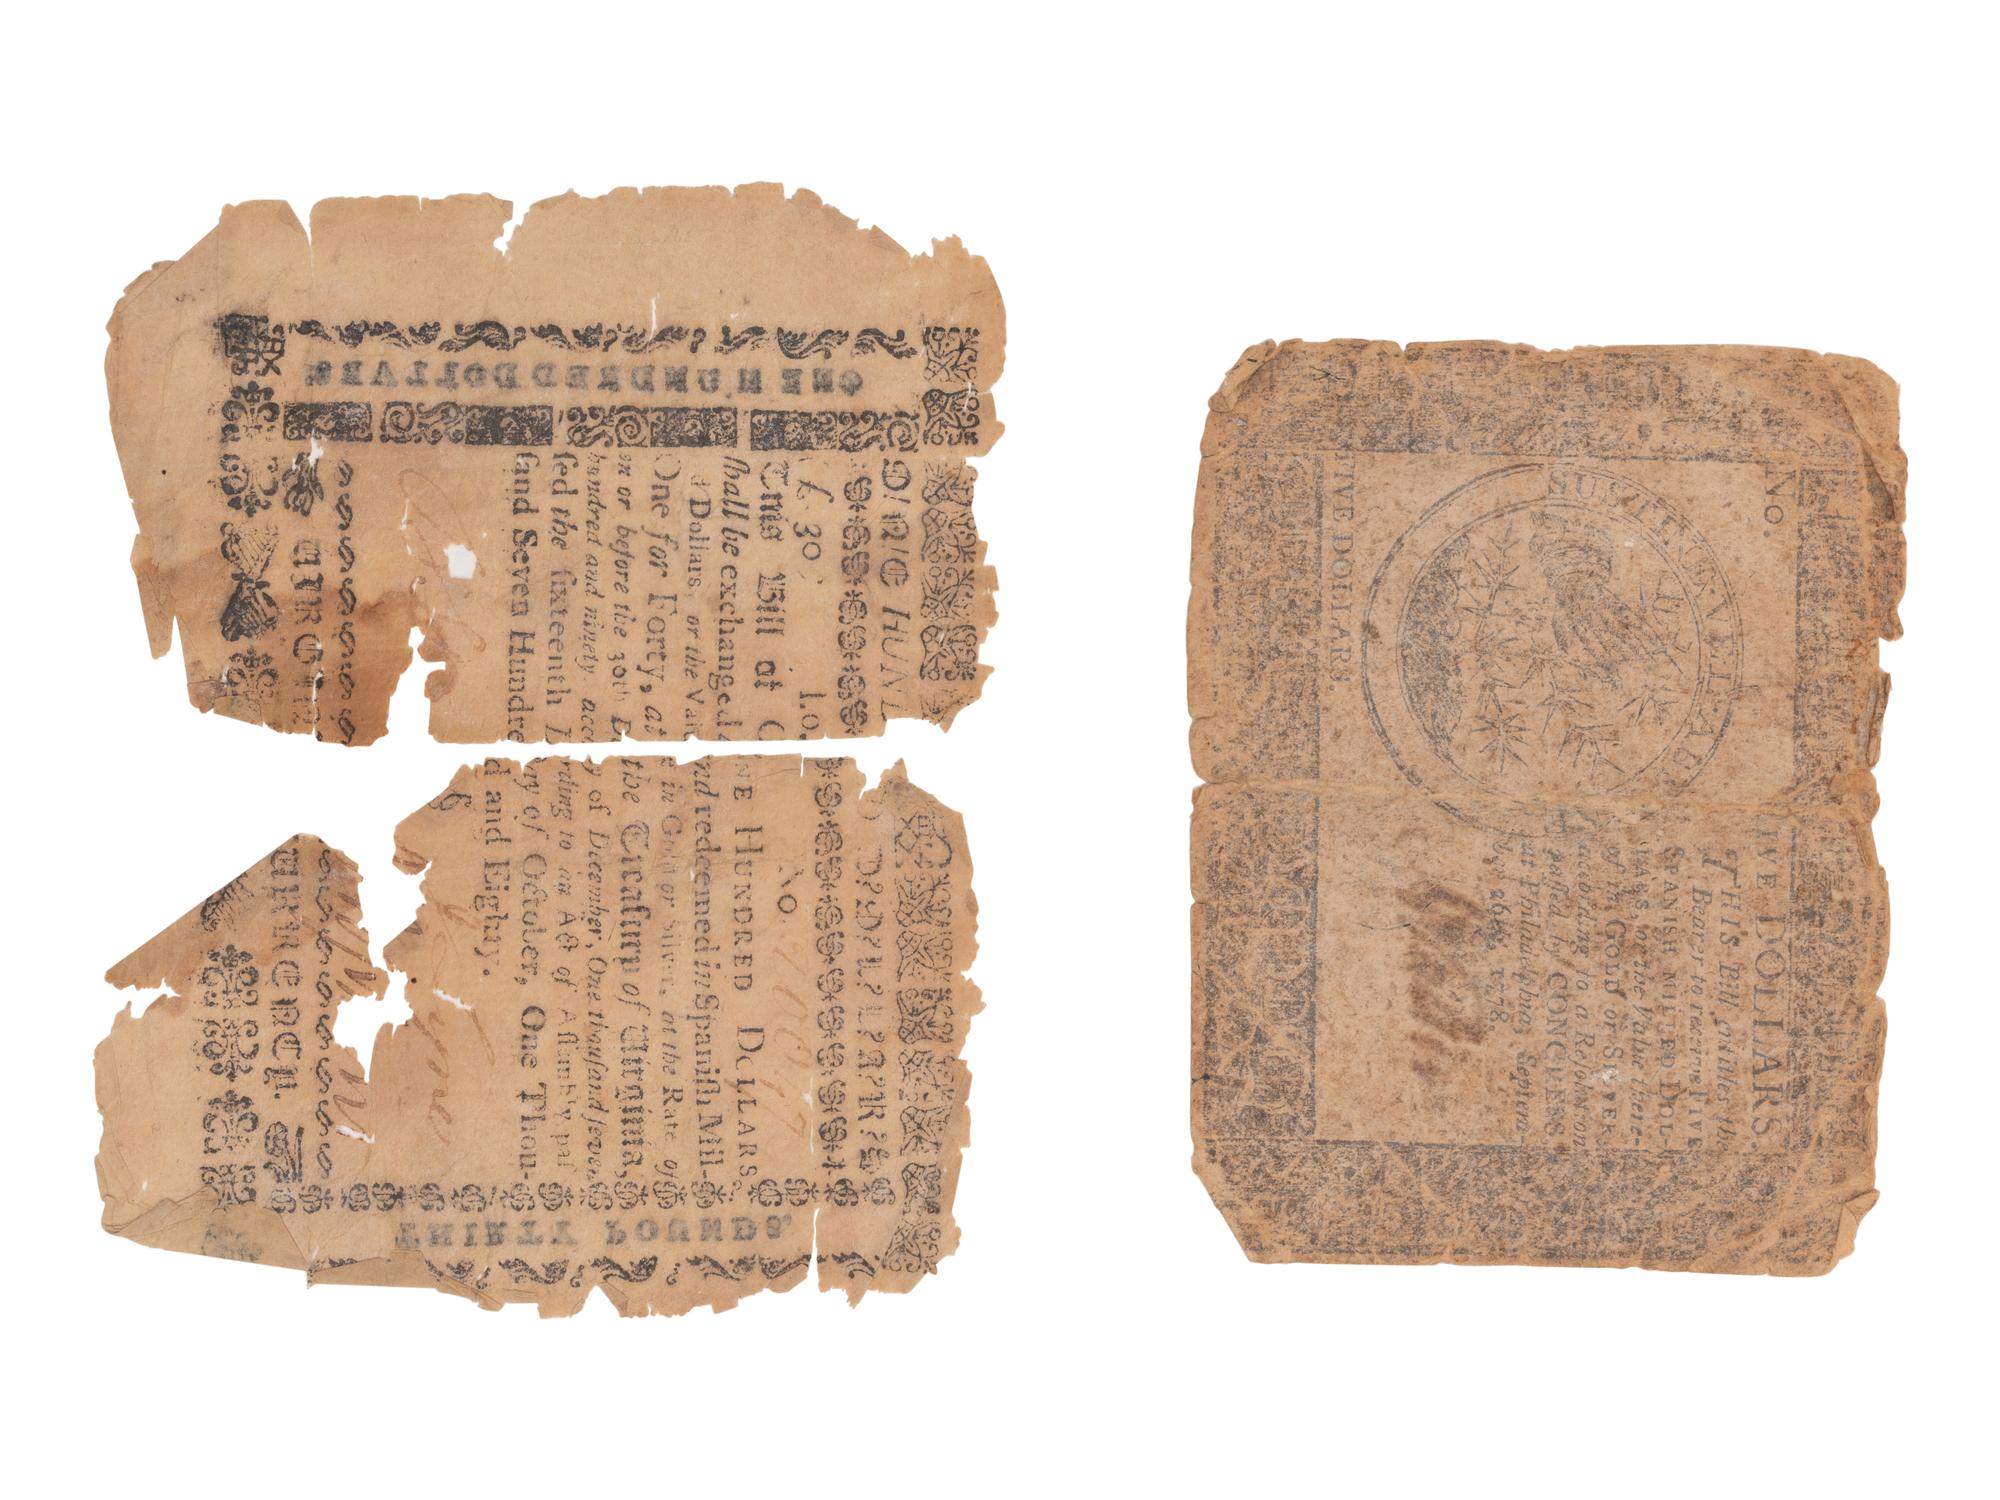 ONE HUNDRED DOLLARS
O/N/E HUN
£ 30 No.
This Bill of ONE HUNDRED DOLLARS,
ſhall be exchanged and redeemed in Spaniſh Mil-
d Dollars, or the Value in Gold or Silver, at the Rate of
One for Forty, at the Treaſury of Virginia,
on or before the 30th Day of December, One thouſand ſeven
hundred and ninety, according to an Act of Aſſembly paſ
ſed the ſixteenth Day of October, One Thou-
ſand Seven Hundred and Eighty.
6
CURRENCY.
THIRTY POUNDS.
No. FIVE DOLLARS.
THIS Bill entitles the
Bearer to receive FIVE
SPANISH MILLED DOL-
LARS, or the Value there-
of in GOLD or SILVER,
according to a Reſolution
paſſed by CONGRESS,
at Philadelphia, Septem-
ber 26th, 1778.
SUSTINE VEL ABS
FIVE DOLLARS.